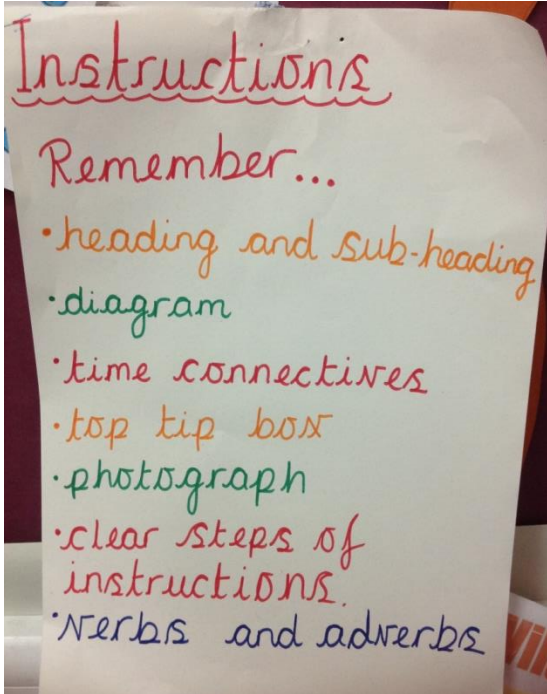 Instructions
Remember...
•heading and sub-heading
•diagram
•time connectives
•top tip box
•photograph
•clear steps of
instructions.
•verbs and adverbs